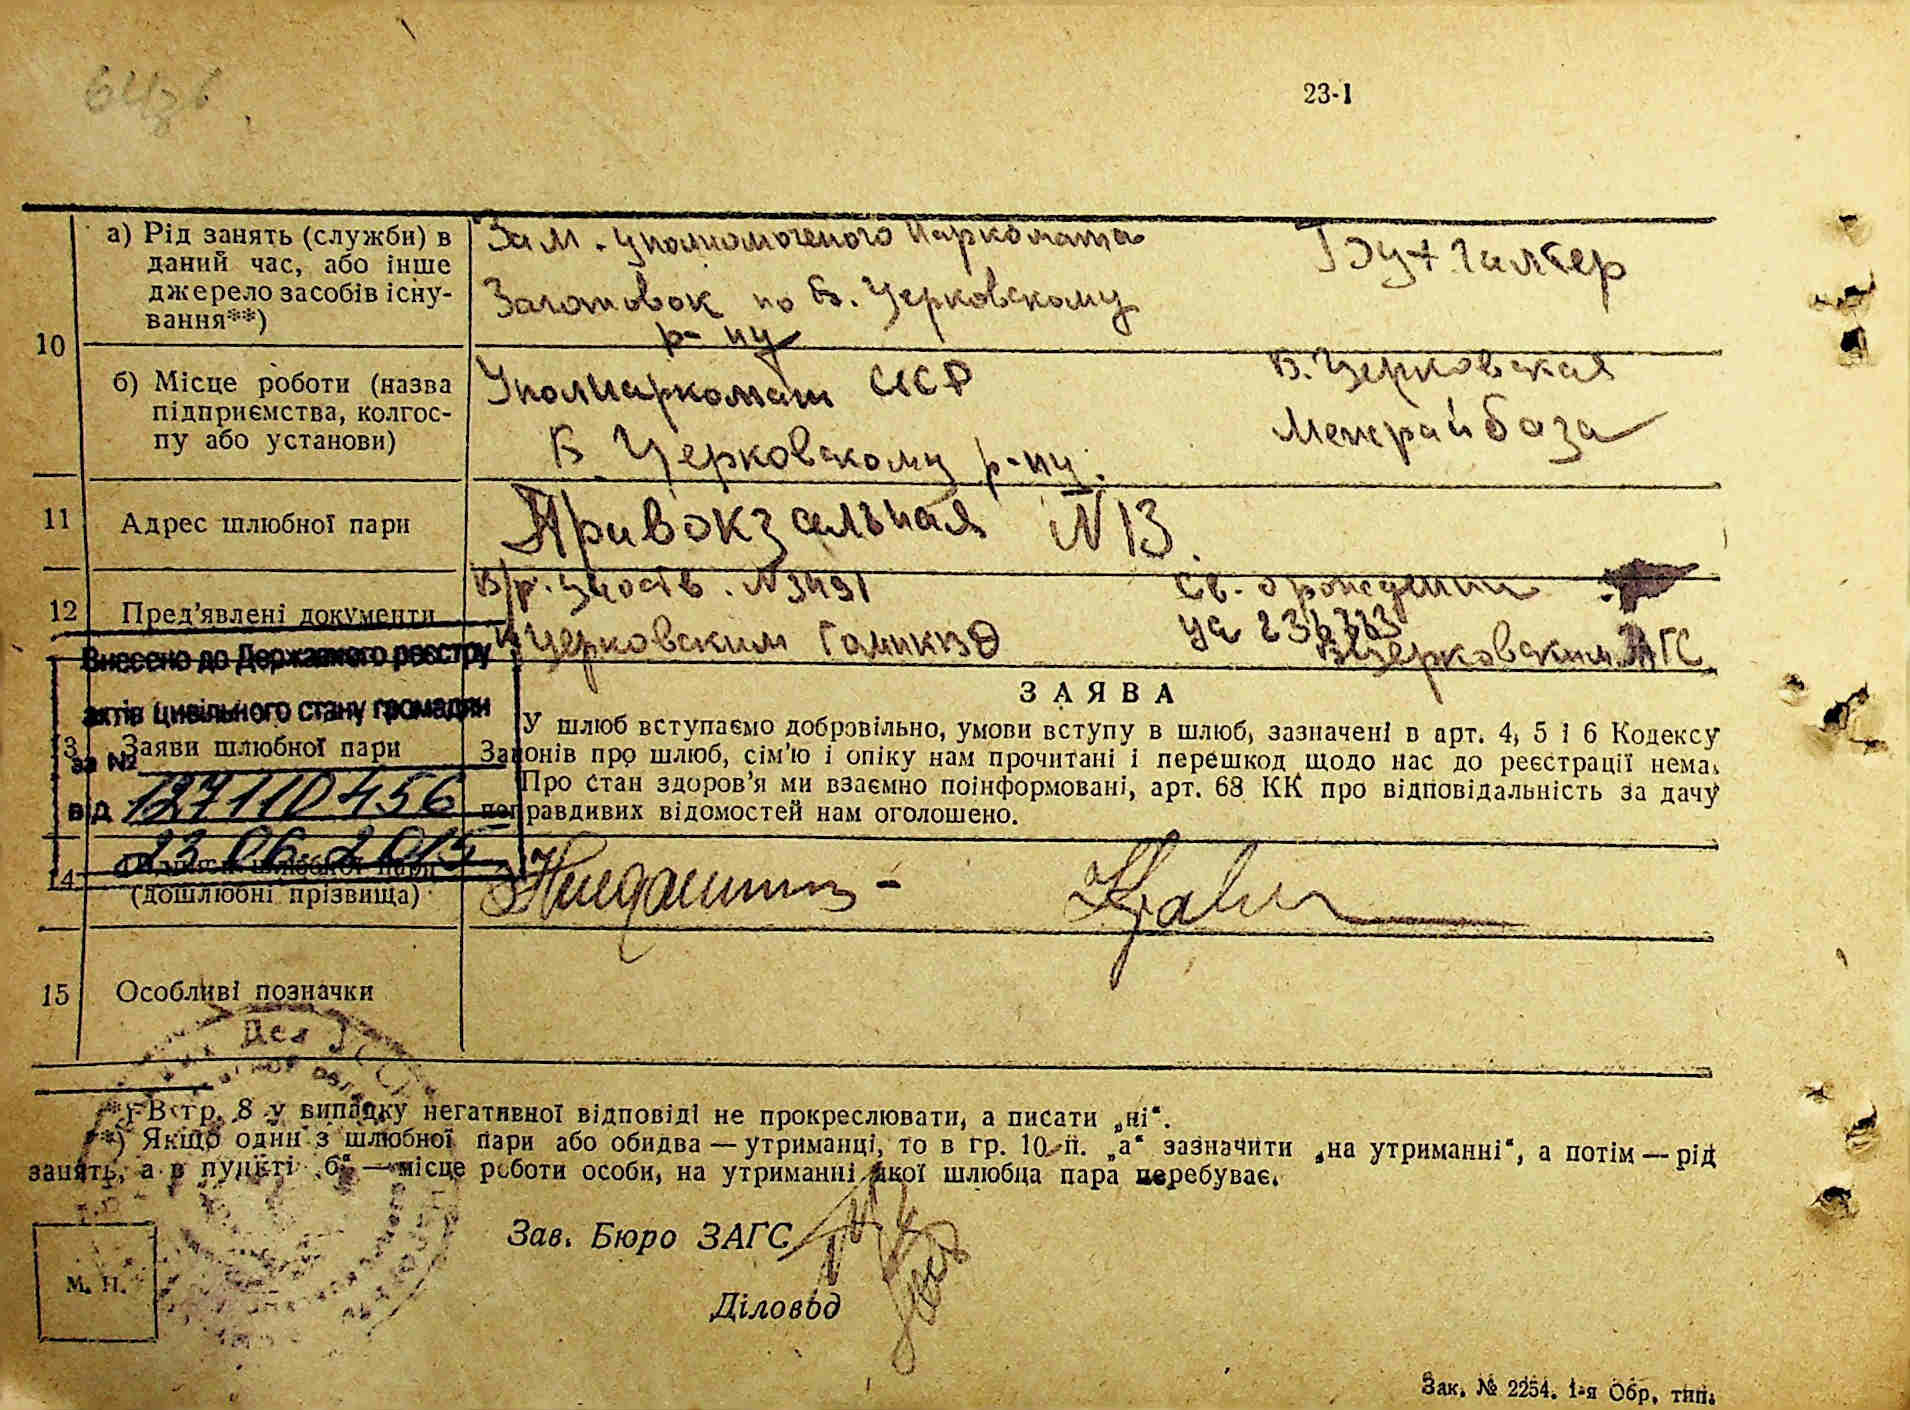 23-1
10
а) Рід занять (служби) в
даний час, або інше
джерело засобів існу-
вання**)
Зам. уполномоченого Наркомата
Заготовок по Б. Церковскому
р-ну
Бухгалтер
б) Місце роботи (назва
підприємства, колгос-
пу або установи)
Уполнаркомат СССР
Б. Церковскому р-ну.
Б. Церковская
Межрайбаза
11
Адрес шлюбної пари
Привокзальная N 13.
12
Пред'явлені документи
В/р. N 3491
Церковским
Св. о рождении
Церковским ЗАГС
Внесено до Державного реєстру
актів цивільного стану громадян
за №
127110456
від
23 06 2015
Заяви шлюбної пари
ЗАЯВА
У шлюб вступаємо добровільно, умови вступу в шлюб, зазначені в арт. 4, 5 і 6 Кодексу
Законів про шлюб, сім'ю і опіку нам прочитані і перешкод щодо нас до реєстрації нема.
Про стан здоров'я ми взаємно поінформовані, арт. 68 КК про відповідальність за дачу
неправдивих відомостей нам оголошено.
14
шлюбної пари
(дошлюбні прізвища)
15
Особливі позначки
*) В гр. 8 у випадку негативної відповіді не прокреслювати, а писати „ні“.
**) Якщо один з шлюбної пари або обидва — утриманці, то в гр. 10 п. „а“ зазначити „на утриманні“, а потім — рід
занять, а в пункті „б“ — місце роботи особи, на утриманні якої шлюбна пара перебуває.
Зав. Бюро ЗАГС
Діловод
М. П.
Зак. № 2254. 1-я Обр. тип.